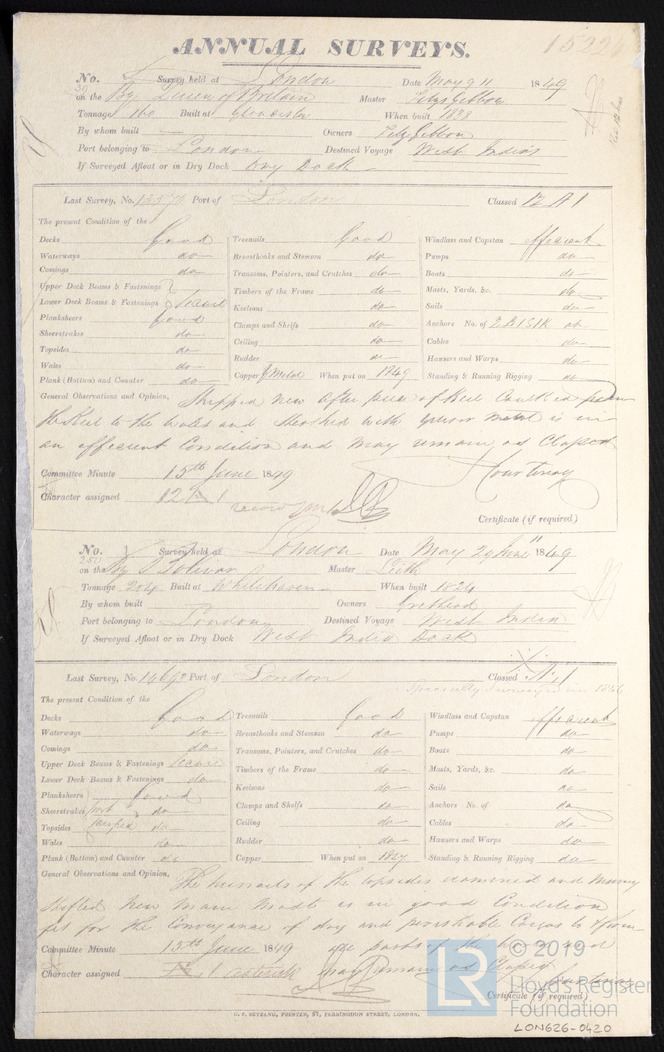 15226
ANNUAL SURVEYS.
No. Survey held at London Date May 9 11 1849
on the Bg Queen of Britain Master Fitzgibbon
Tonnage 160 Built at Gloucester When built 1838
By whom built Owners Fitzgibbon
Port belonging to London Destined Voyage West Indies
If Surveyed Afloat or in Dry Dock Dry Dock
Last Survey, No. Port of London Classed 12 A 1
The present Condition of the
Decks Good Treenails Good Windlass and Capstan efficient
Waterways do Breasthooks and Stemson do Pumps do
Comings do Transoms, Pointers, and Crutches do Boats do
Upper Deck Beams & Fastenings Timbers of the Frame do Masts, Yards, &c. do
Lower Deck Beams & Fastenings Secure Keelsons do Sails do
Planksheers Good Clamps and Shelfs do Anchors No. of do
Sheerstrakes do Ceiling do Cables do
Topsides do Rudder do Hawsers and Warps do
Wales do Copper Y Metal When put on 1849 Standing & Running Rigging do
Plank (Bottom) and Counter do
General Observations and Opinion, Shipped new after piece of Keel Caulked from
the Keel to the Wales and Sheathed with Yellow Metal is in
an efficient Condition and may remain as Classed
Courtenay
Committee Minute 15th June 1849
Character assigned 12 A 1
Certificate (if required)
No. 1 Survey held at London Date May 29 June 11 1849
on the Bg Bolivar Master Leith
Tonnage 204 Built at Whitehaven When built 1824
By whom built Owners
Port belonging to London Destined Voyage West Indies
If Surveyed Afloat or in Dry Dock West India Dock
Last Survey, No. Port of London Classed A 1
The present Condition of the
Decks Good Treenails Good Windlass and Capstan efficient
Waterways do Breasthooks and Stemson do Pumps do
Comings do Transoms, Pointers, and Crutches do Boats do
Upper Deck Beams & Fastenings Secure Timbers of the Frame do Masts, Yards, &c. do
Lower Deck Beams & Fastenings do Keelsons do Sails do
Planksheers Good Clamps and Shelfs do Anchors No. of do
Sheerstrakes do Ceiling do Cables do
Topsides do Rudder do Hawsers and Warps do
Wales do Copper When put on 1847 Standing & Running Rigging do
Plank (Bottom) and Counter do
General Observations and Opinion, The treenails of the topsides examined and many
shifted new Main Mast is in good Condition
fit for the Conveyance of dry and perishable Cargos to & from
all parts of the world and
may remain as Classed
Committee Minute 15th June 1849
Character assigned 1 asterisk
Courtenay
Certificate (if required)
G. F. SEYFANG, PRINTER, 57, FARRINGDON STREET, LONDON.
LR
© 2019
Lloyd's Register
Foundation
LON626-0420